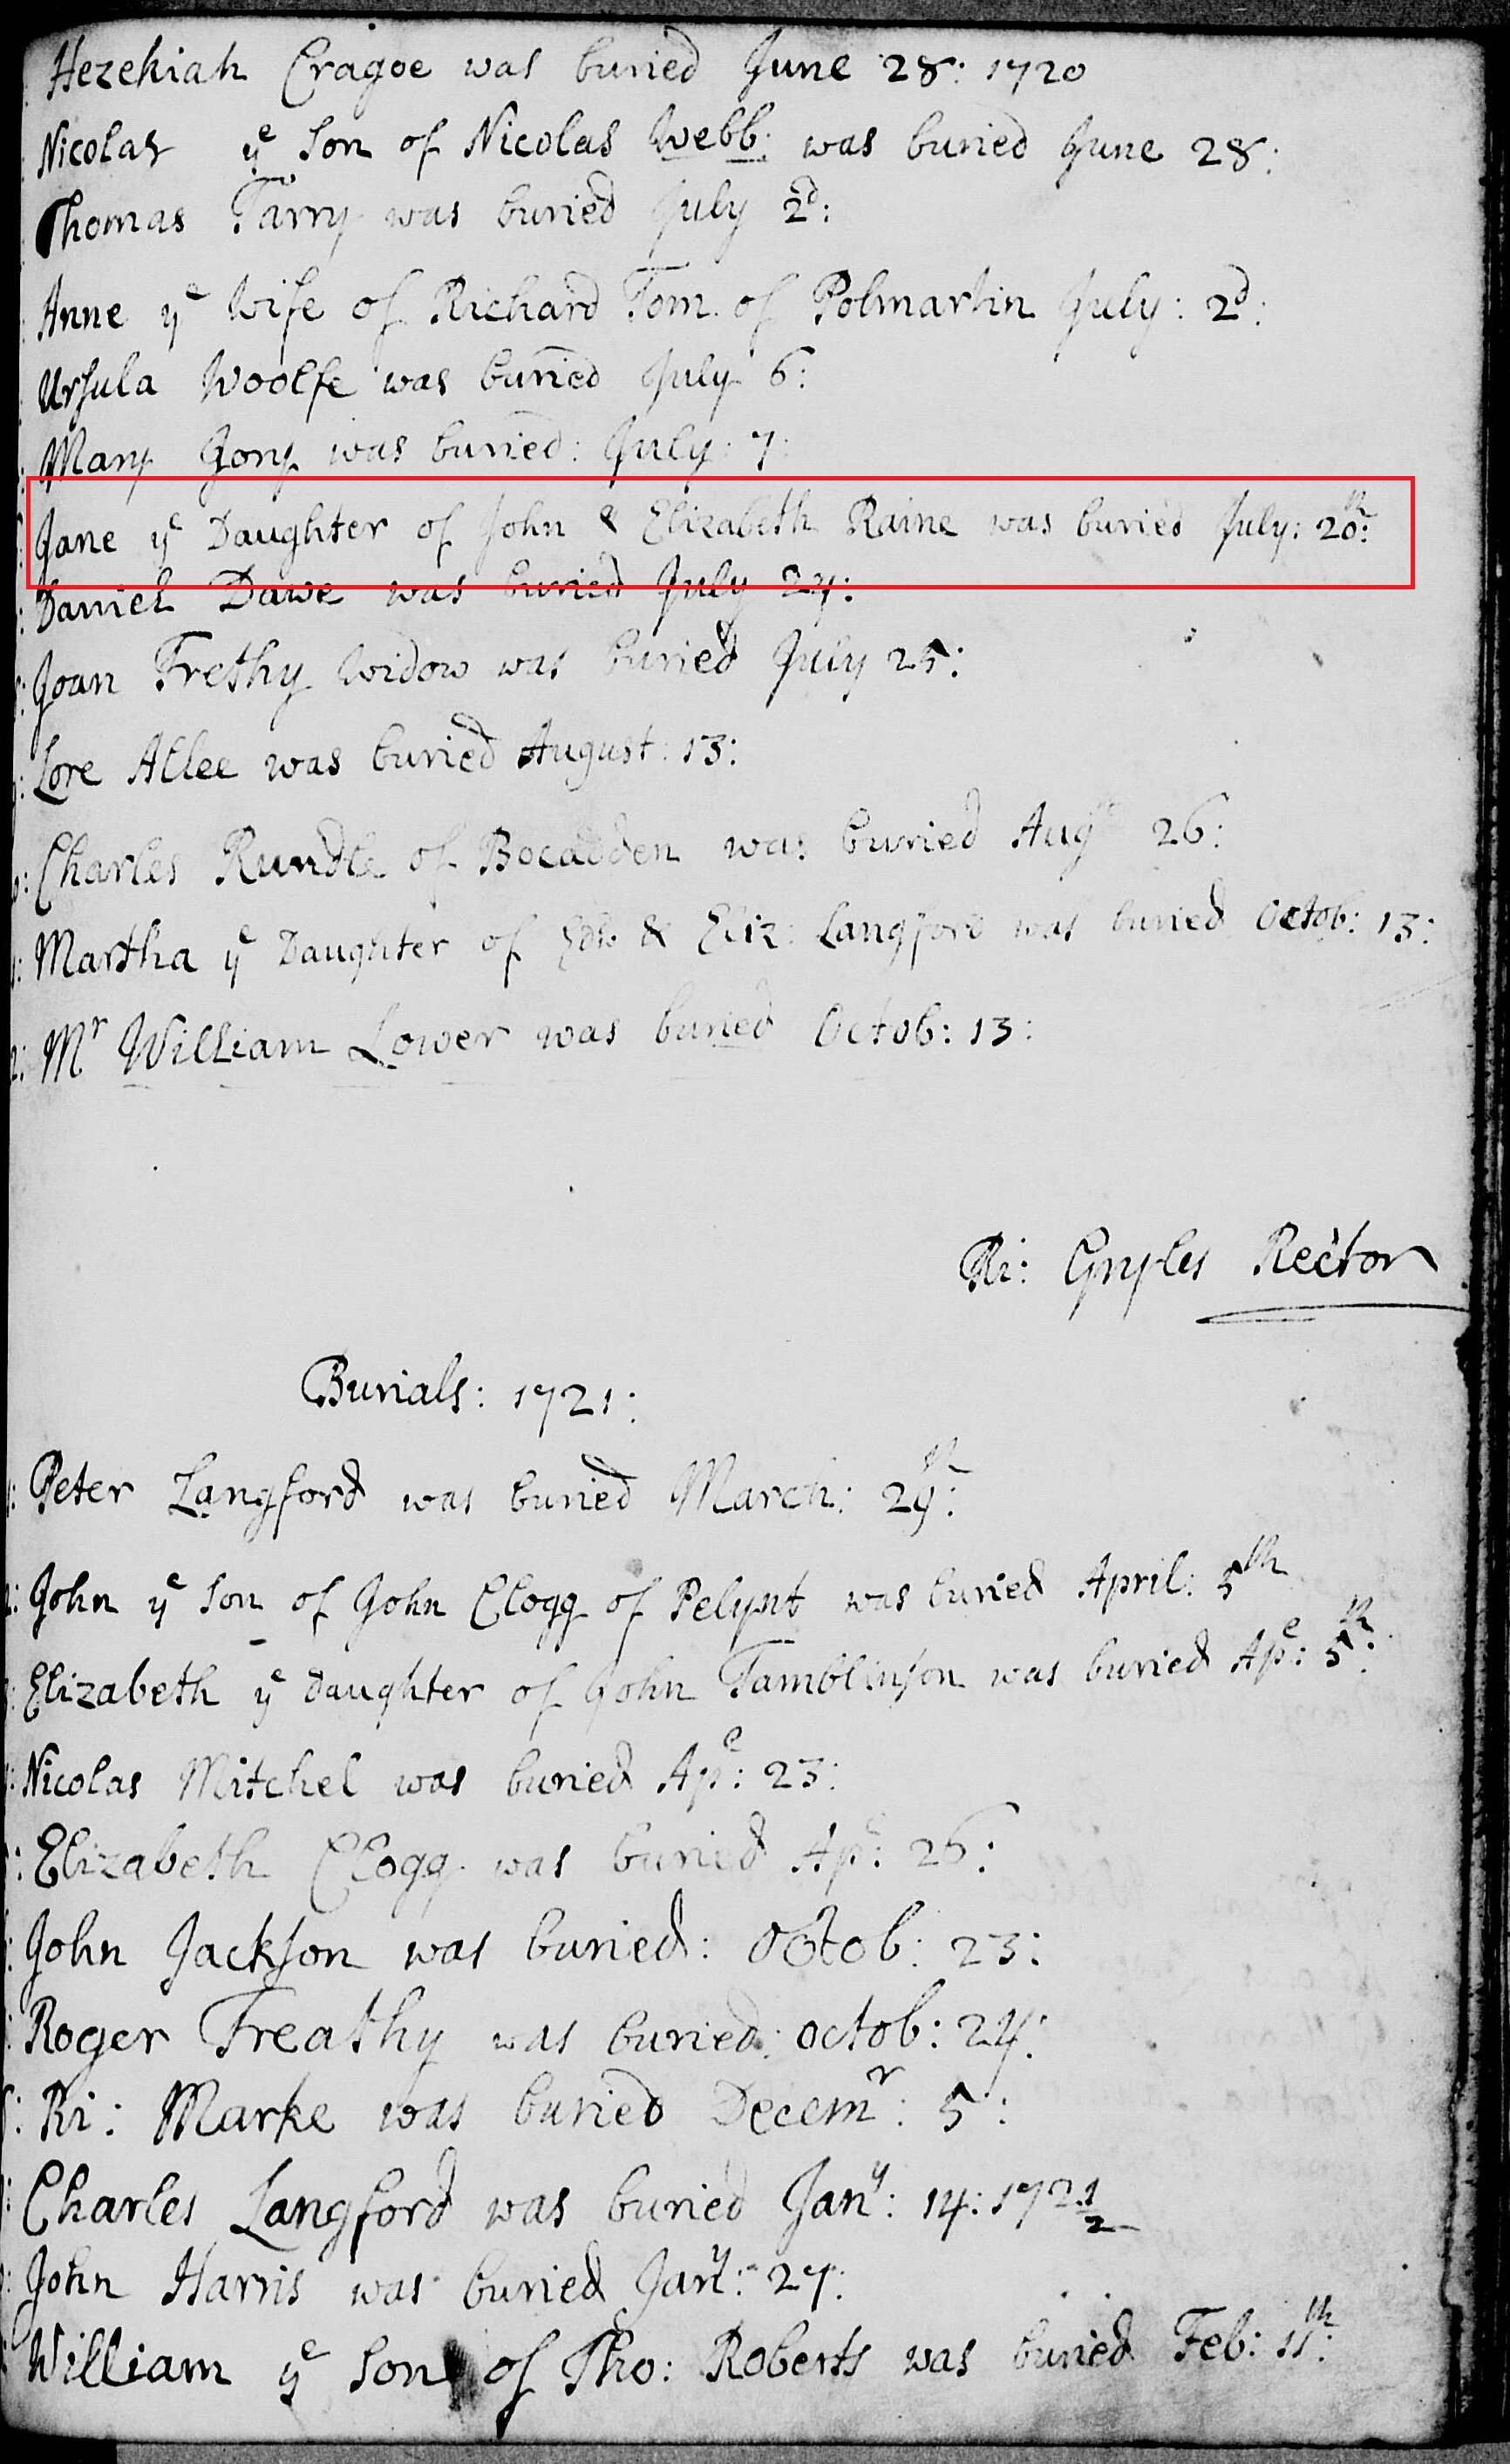 Hezekiah Cragoe was buried June 28: 1720
Nicolas yᵉ Son of Nicolas Webb: was buried June 28:
Thomas Tarry was buried July 2ᵈ:
Anne yᵉ Wife of Richard Tom of Polmartin July: 2ᵈ:
Ursula Woolfe was buried July 6:
Mary was buried: July: 7:
Jane yᵉ Daughter of John & Elizabeth Raine was buried July: 20ᵗʰ:
Daniel Dawe was buried July 24:
Joan Frethy Widow was buried July 25:
Lore Allee was buried August: 13:
Charles Rundle of Bocadden was buried Augᵗ 26:
Martha yᵉ Daughter of Edw: & Eliz: Langford was buried Octob: 13:
Mʳ William Lower was buried Octob: 13:
Ri: Gryles Rector
Burials: 1721:
Peter Langford was buried March: 29ᵗʰ:
2: John yᵉ Son of John Clogg of Pelynt was buried April: 5ᵗʰ
3: Elizabeth yᵉ Daughter of John Tamblinson was buried Apᵉ: 5ᵗʰ:
Nicolas Mitchel was buried Apᵉ: 23:
Elizabeth Clogg was buried Apᵉ: 26:
John Jackson was buried: Octob: 23:
Roger Freathy was buried: Octob: 24:
Ri: Marke was buried Decemʳ: 5:
Charles Langford was buried Janʸ: 14: 172½
John Harris was buried Janʸ: 27:
William yᵉ Son of Tho: Roberts was buried Feb: 11ᵗʰ: